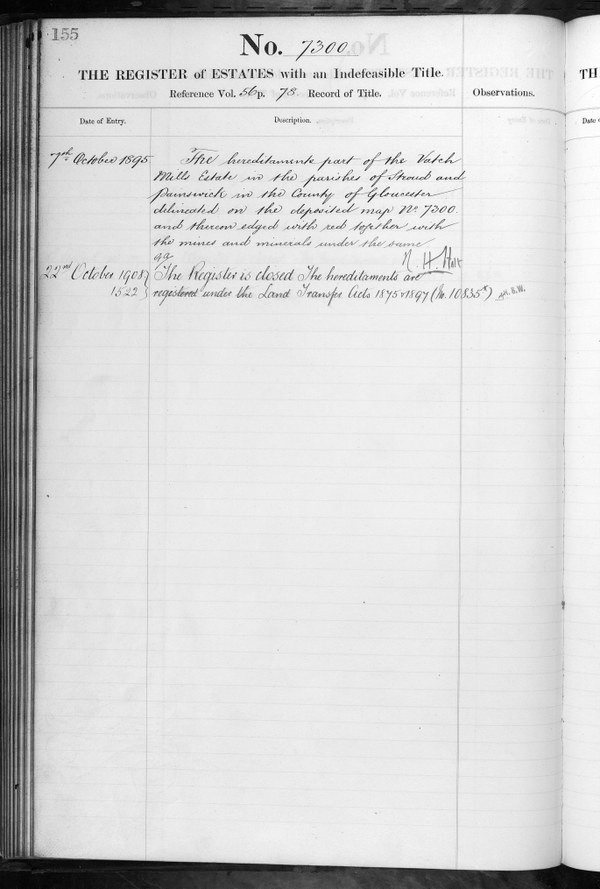 155
No. 7300
THE REGISTER of ESTATES with an Indefeasible Title.
Reference Vol. 56 p. 78 Record of Title.
Observations.
Date of Entry.
Description.
7th October 1895
The hereditaments part of the Vatch
Mills Estate in the parishes of Stroud and
Painswick in the County of Gloucester
delineated on the deposited map No. 7300.
and thereon edged with red together with
the mines and minerals under the same
R. H. Holt
22nd October 1908
1522
The Register is closed The hereditaments are
registered under the Land Transfer Acts 1875 & 1897 (No. 10835)
TH
Date